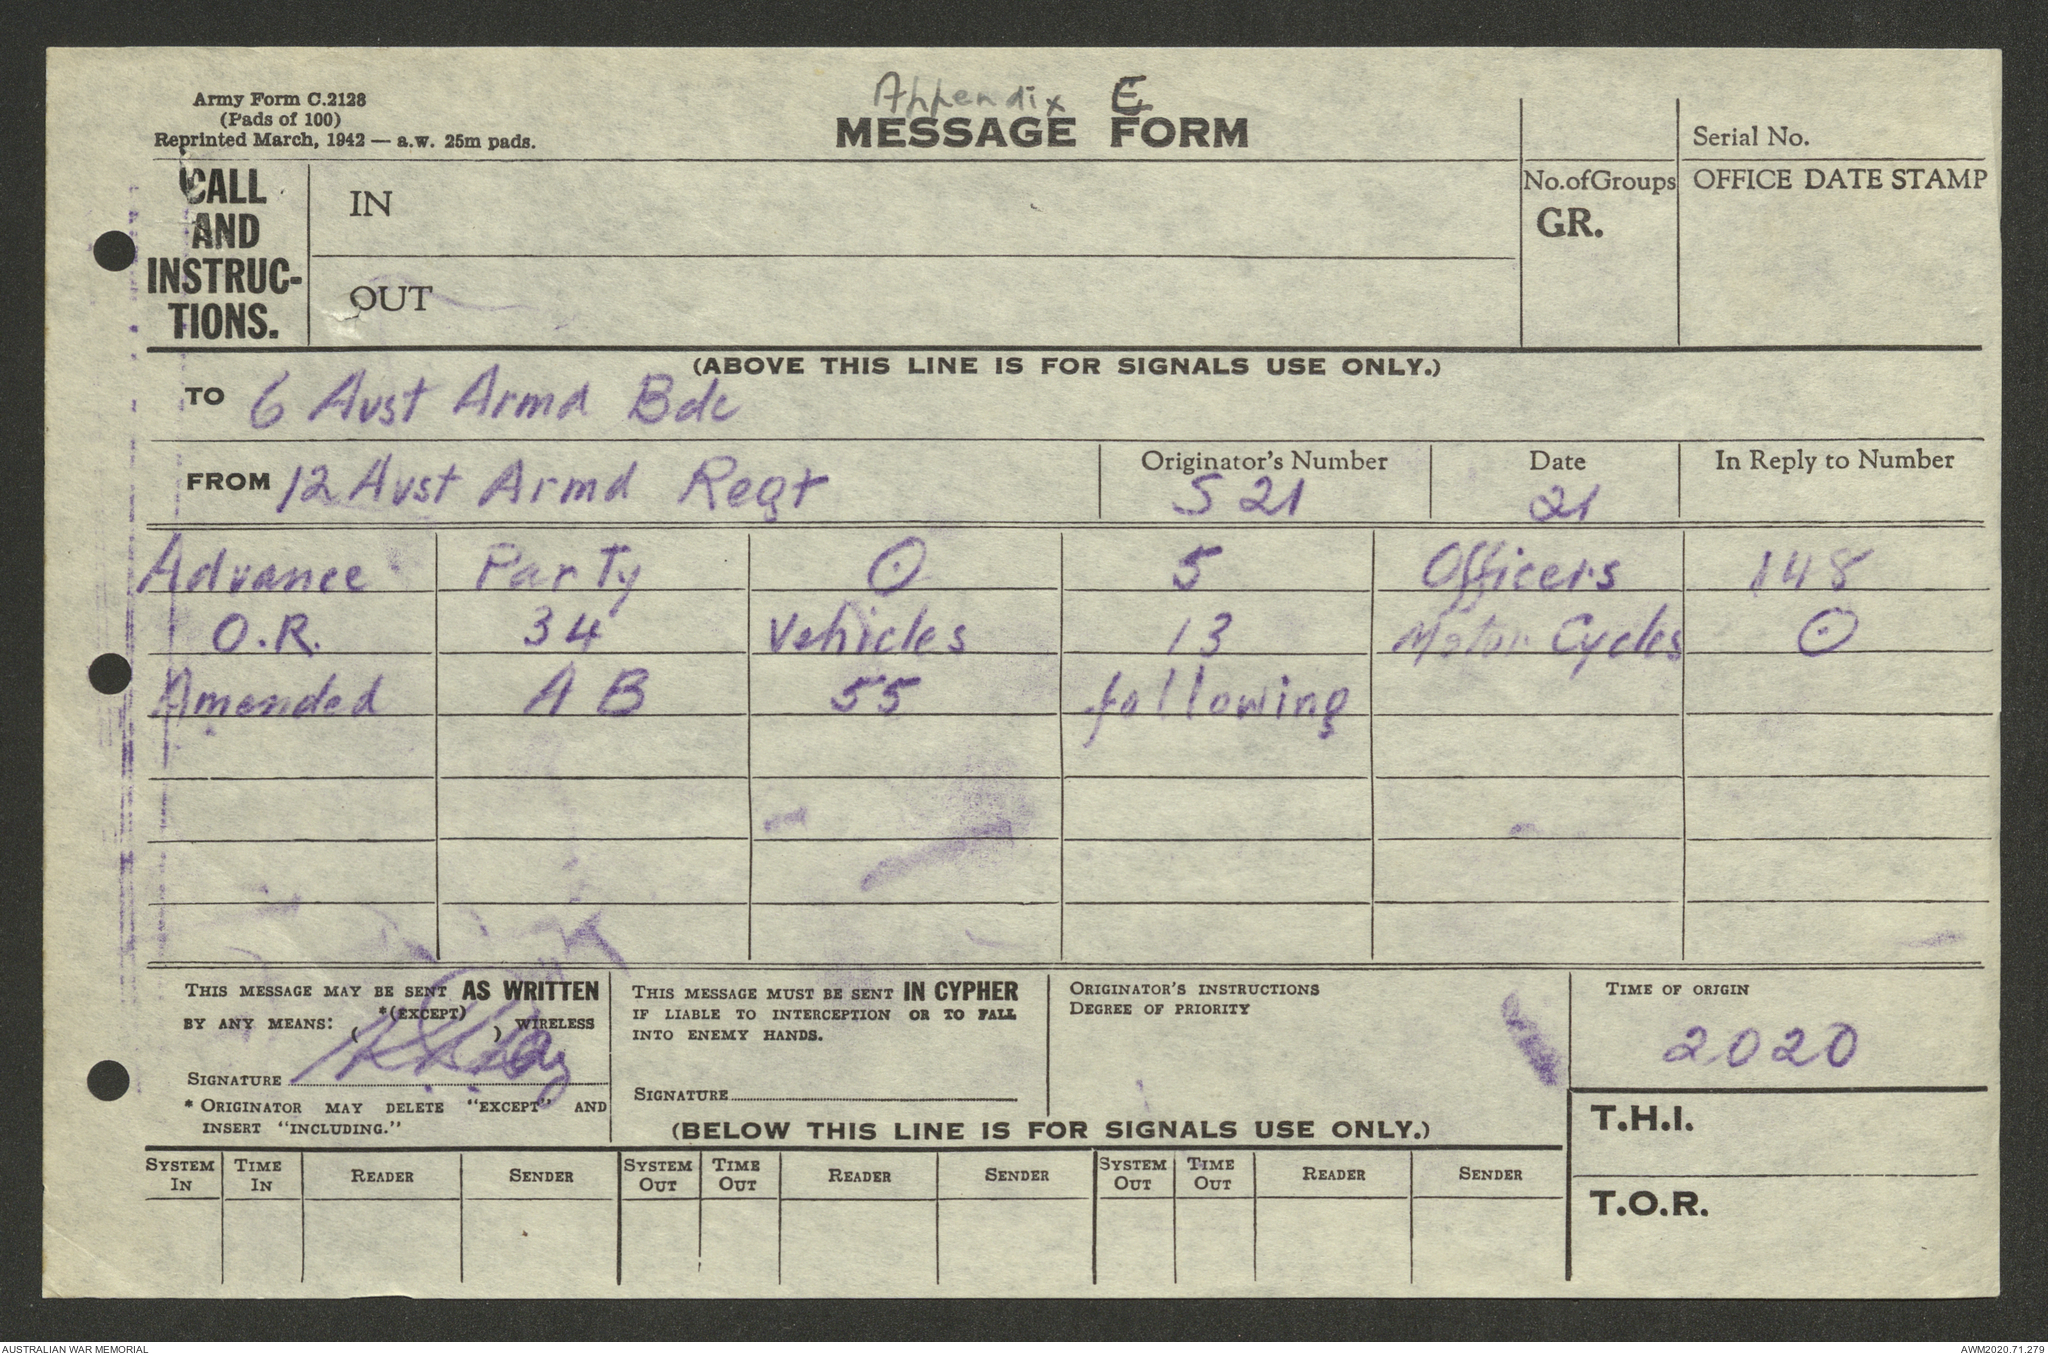 Appendix E
Army Form C.2128
(Pads of 100)
Reprinted March, 1942 — a.w. 25m pads.
MESSAGE FORM
Serial No.
CALL AND INSTRUC-TIONS.
IN
No.ofGroups
GR.
OFFICE DATE STAMP
OUT
(ABOVE THIS LINE IS FOR SIGNALS USE ONLY.)
TO 6 Aust Armd Bde
FROM 12 Aust Armd Regt
Originator's Number
S 21
Date
21
In Reply to Number
Advance Party ⊙ 5 Officers 148
O.R. 34 Vehicles 13 Motor Cycles ⊙
Amended A B 55 following
THIS MESSAGE MAY BE SENT AS WRITTEN
BY ANY MEANS: ( *(EXCEPT) ) WIRELESS
SIGNATURE
* ORIGINATOR MAY DELETE "EXCEPT" AND
INSERT "INCLUDING."
THIS MESSAGE MUST BE SENT IN CYPHER
IF LIABLE TO INTERCEPTION OR TO FALL
INTO ENEMY HANDS.
SIGNATURE
ORIGINATOR'S INSTRUCTIONS
DEGREE OF PRIORITY
TIME OF ORIGIN
2020
(BELOW THIS LINE IS FOR SIGNALS USE ONLY.)
T.H.I.
T.O.R.
SYSTEM IN TIME IN READER SENDER SYSTEM OUT TIME OUT READER SENDER SYSTEM OUT TIME OUT READER SENDER
AUSTRALIAN WAR MEMORIAL
AWM2020.71.279